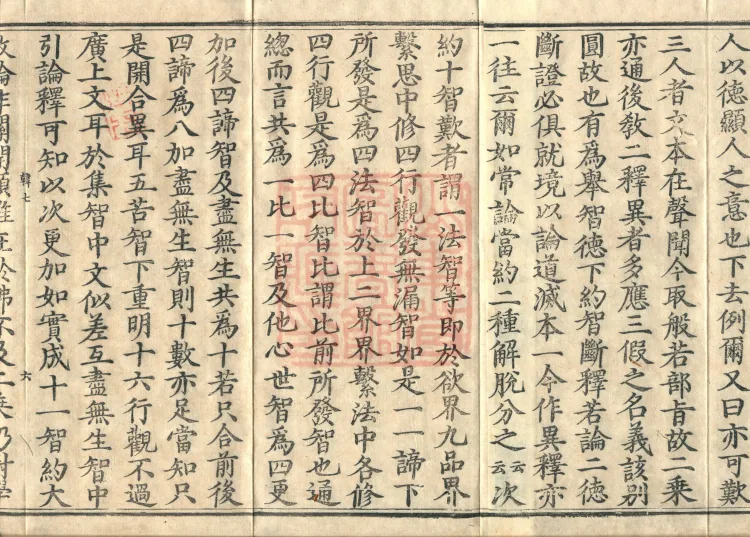 人以德顯人之意也下去例爾又曰亦可歎
三人者本在聲聞今取般若部旨故二乗
亦通後教二釋異者多應三假之名義該別
圓故也有爲舉智德下約智斷釋若論二德
斷證必俱就境以論道滅本一今作異釋亦
一往云爾如常論當約二種解脫分之云云次
約十智歎者謂一法智等即於欲界九品界
繫思中修四行觀發無漏智如是一一諦下
所發是爲四法智於上二界界繫法中各修
四行觀是爲四比智比謂比前所發智也通
總而言共爲一比一智及他心世智爲四更
加後四諦智及盡無生共爲十若只合前後
四諦爲八加盡無生智則十數亦足當知只
是開合異耳五苦智下重明十六行觀不過
廣上文耳於集智中文似差互盡無生智中
引論釋可知以次更加如實成十一智約大
韓七
六